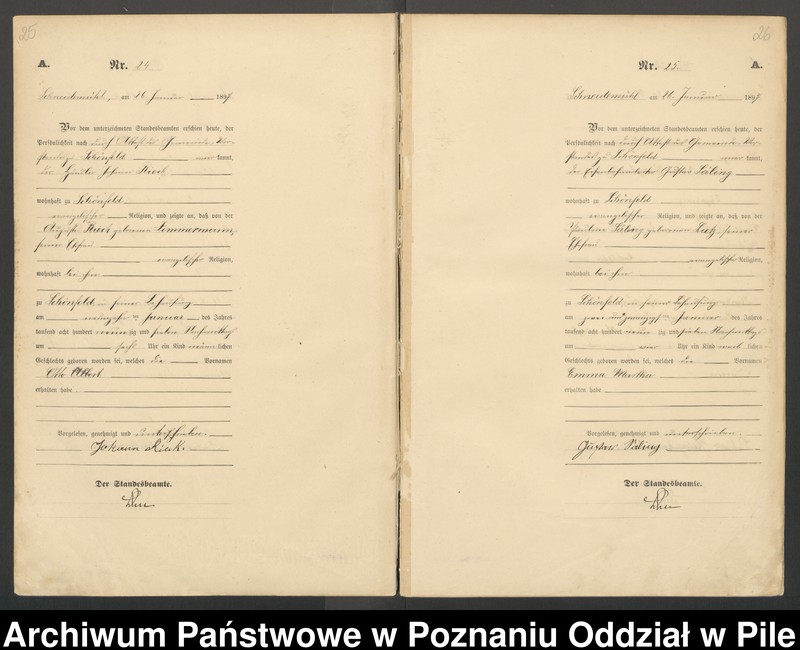 25
A. Nr. 24
Schneidemühl, am 26 Januar 1897
Vor dem unterzeichneten Standesbeamten erschien heute, der
Persönlichkeit nach durch Attest des Gemeinde-Vor-
standes zu Schönfeld kannt,
der Händler Johann Rieck
wohnhaft zu Schönfeld
evangelischer Religion, und zeigte an, daß von der
Auguste Rieck geborene Timmermann,
seiner Ehefrau
evangelischer Religion,
wohnhaft bei ihm
zu Schönfeld in seiner Behausung
am Januar des Jahres
tausend acht hundert neunzig und sieben Nachmittags
um Uhr ein Kind männlichen
Geschlechts geboren worden sei, welches die Vornamen
Otto Albert
erhalten habe
Vorgelesen, genehmigt und unterschrieben.
Johann Rieck.
Der Standesbeamte.
26
Nr. 25. A.
Schneidemühl am 26 Januar 1897
Vor dem unterzeichneten Standesbeamten erschien heute, der
Persönlichkeit nach durch Attest des Gemeinde-Vor-
standes zu Schönfeld kannt,
der Gustav
wohnhaft zu Schönfeld
evangelischer Religion, und zeigte an, daß von der
geborenen seiner
Ehefrau
evangelischer Religion,
wohnhaft bei ihm
zu Schönfeld in seiner Behausung
am zwei und zwanzigsten Januar des Jahres
tausend acht hundert neunzig und sieben Nachmittags
um vier Uhr ein Kind weiblichen
Geschlechts geboren worden sei, welches die Vornamen
Emma Martha
erhalten habe
Vorgelesen, genehmigt und unterschrieben.
Gustav
Der Standesbeamte.
Archiwum Państwowe w Poznaniu Oddział w Pile